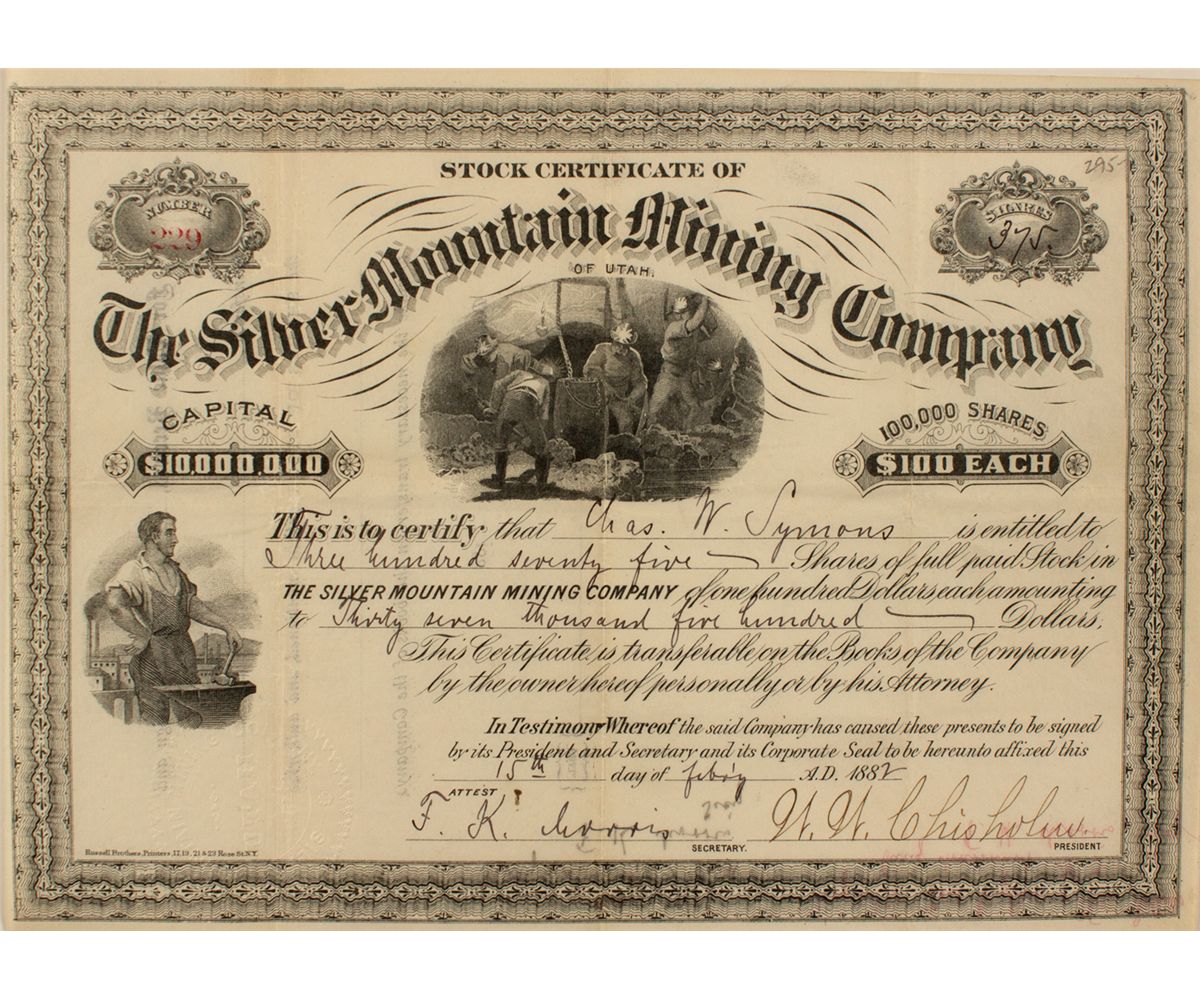 STOCK CERTIFICATE OF
295-
NUMBER
229
SHARES
375.
The Silver Mountain Mining Company
OF UTAH.
CAPITAL
$10,000,000
100,000 SHARES
$100 EACH
This is to certify that Chas. W. Symons is entitled to
Three hundred seventy five Shares of full paid Stock in
THE SILVER MOUNTAIN MINING COMPANY of one hundred Dollars each amounting
to Thirty seven thousand five hundred Dollars.
This Certificate is transferable on the Books of the Company
by the owner hereof personally or by his Attorney.
In Testimony Whereof the said Company has caused these presents to be signed
by its President and Secretary and its Corporate Seal to be hereunto affixed this
15th day of feb'y A.D. 1882
ATTEST
F. K. Morris
W. W. Chisholm
SECRETARY.
PRESIDENT
Russell Brothers, Printers, 17, 19, 21 & 23 Rose St. N.Y.